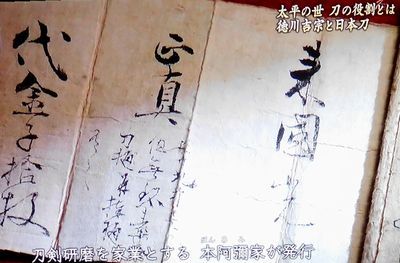 太平の世 刀の役割とは
徳川吉宗と日本刀
来國光
正真
代金子拾枚
ほんあみ
刀剣研磨を家業とする 本阿彌家が発行